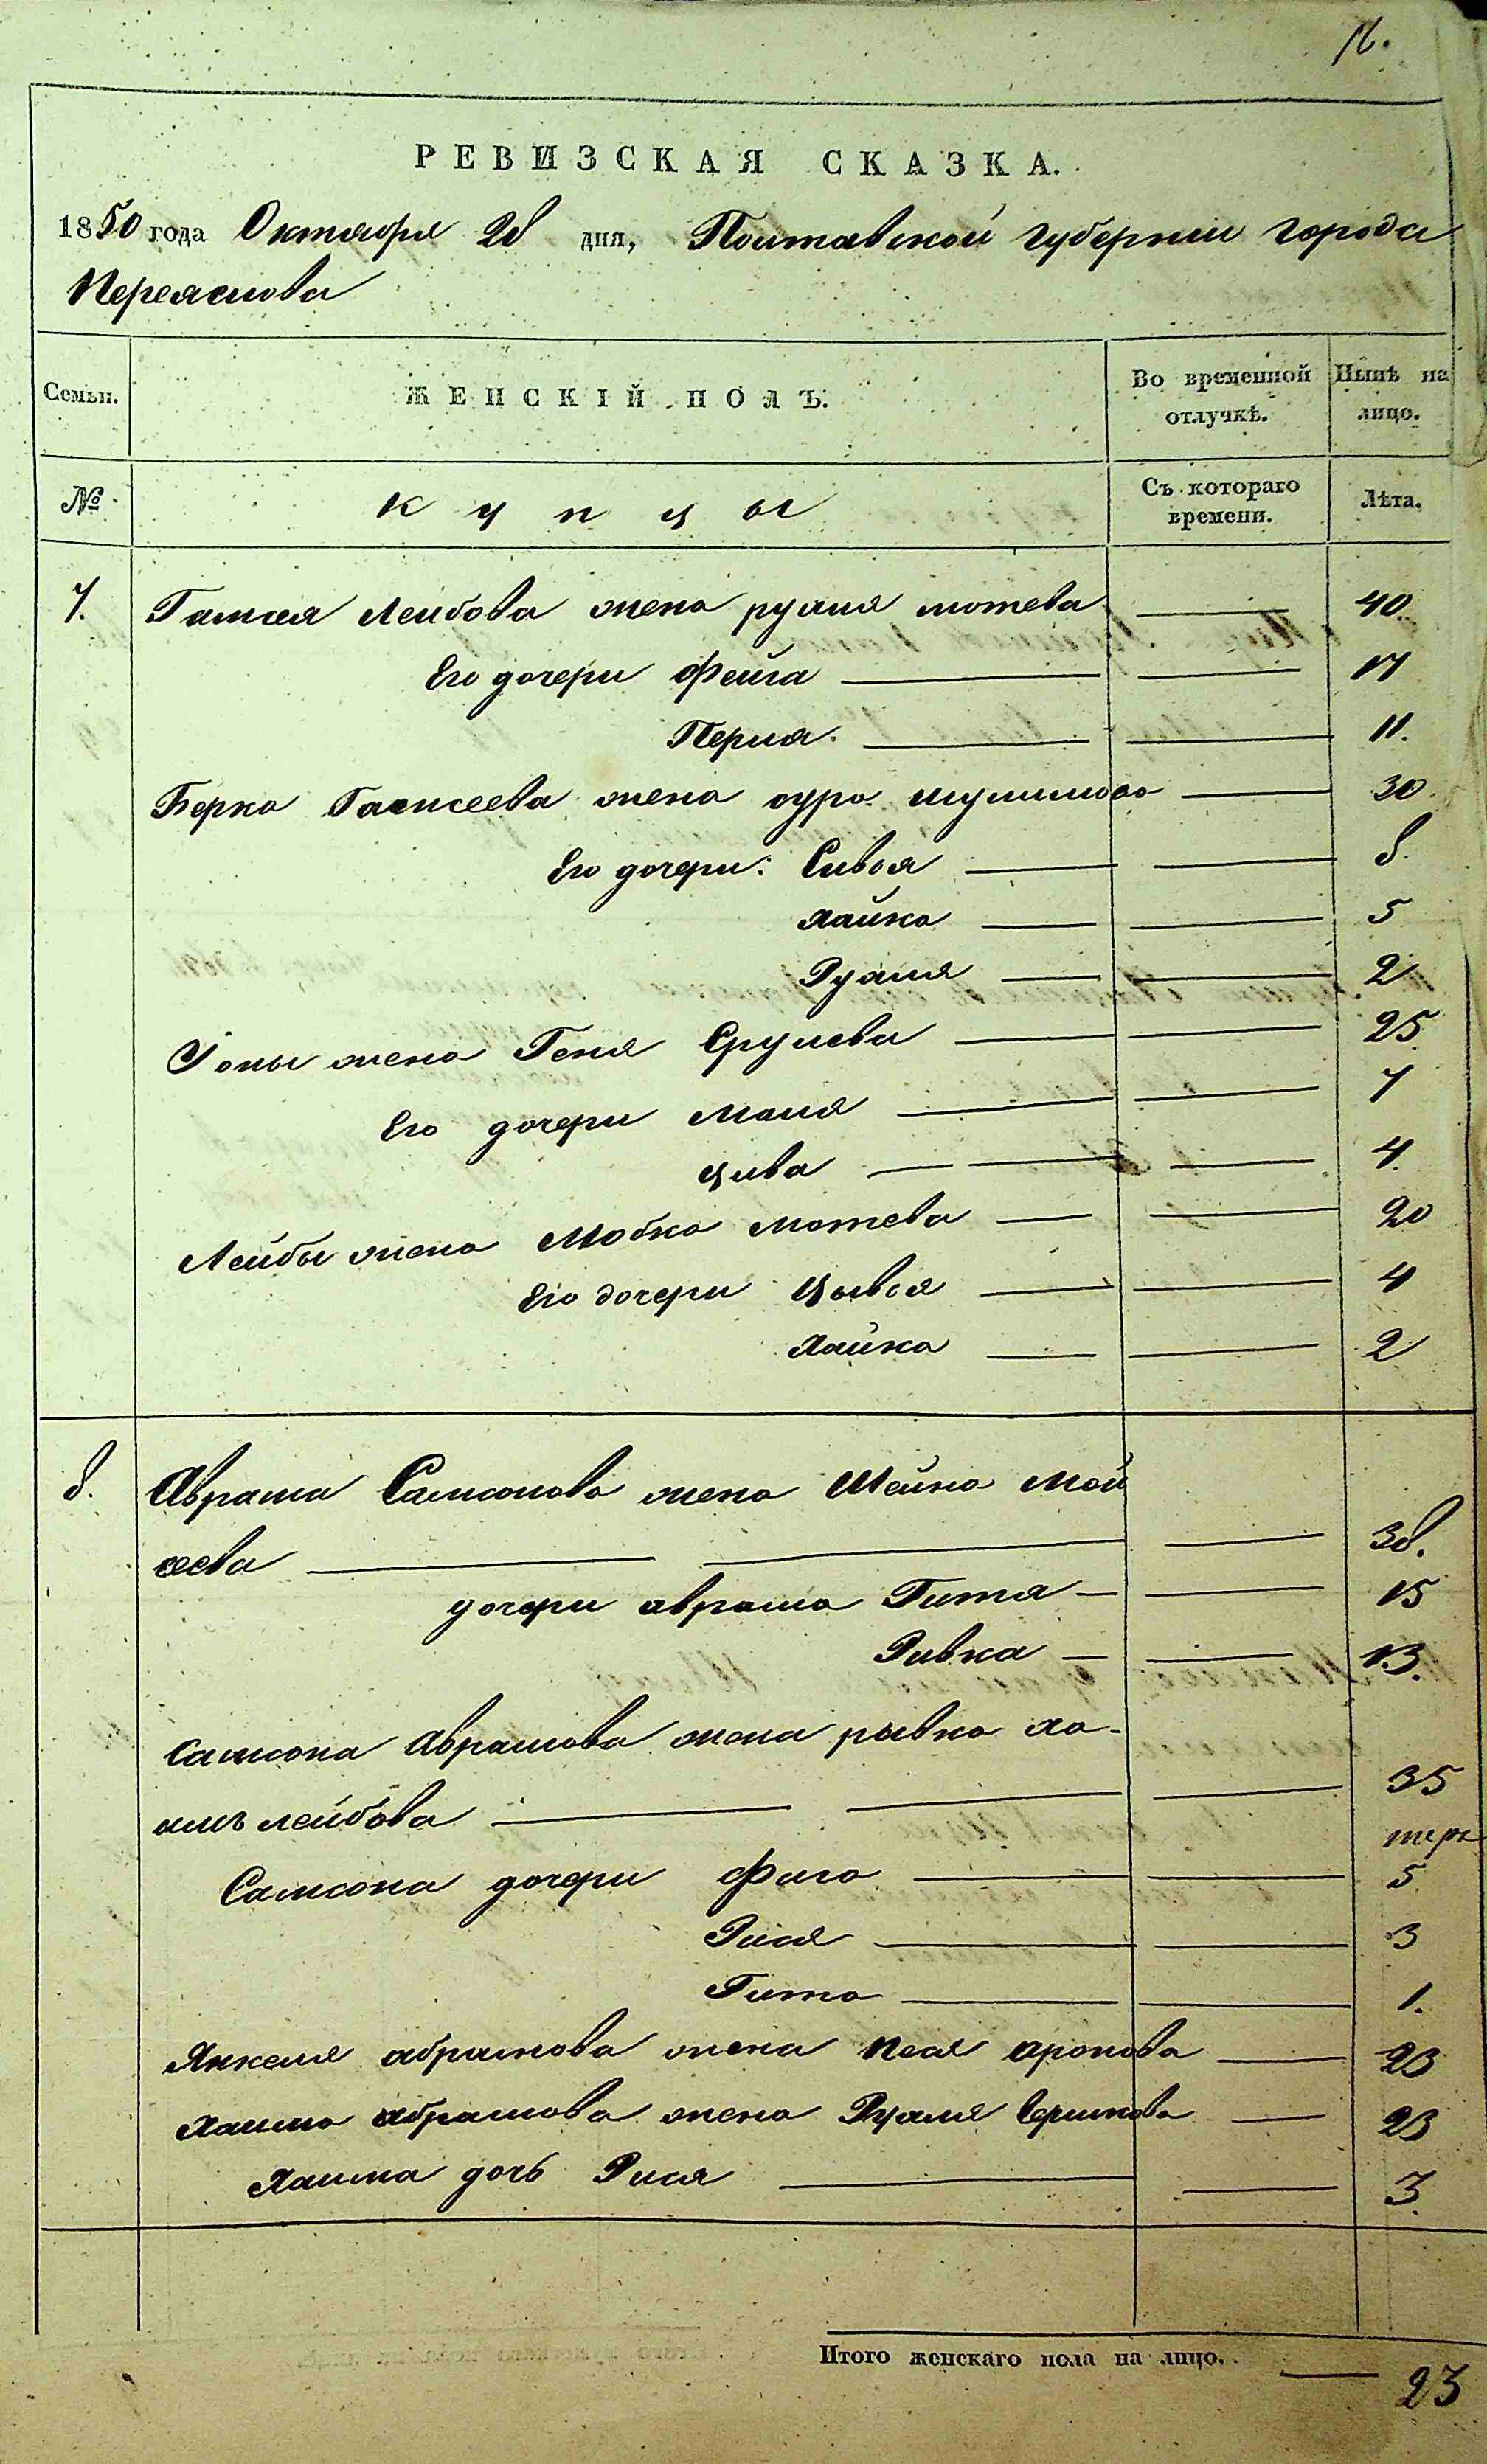 16.
РЕВИЗСКАЯ СКАЗКА.
1850 года Октября 28 дня, Полтавской губернии города
Переяслова
Семьи. ЖЕНСКІЙ ПОЛЪ. Во временной отлучкѣ. Нынѣ на лицо.
№ купцы Съ котораго времени. Лѣта.
7. Гамшея Лейбова жена рухля мотева 40.
Его дочери Фейга 17
Перля 11.
Берка Гамшеева жена сура шулимова 30
Его дочери: Сивья 8.
Хайка 5
Рухля 2
Іоны жена Геня Срулева 25
Его дочери Маля 7
Цива 4.
Лейбы жена Мотева 20
Его дочери Цывья 4
Хайка 2
8. Аврама Самсонова жена Шейна Мой
сеева 38.
дочери аврама Гитя 15
Ривка 13.
Самсона Аврамова жена рывка ха-
имъ лейбова 35
Самсона дочери Фига 5
Рися 3
Гита 1.
Янкеля абрамова жена Песя аронова 23
Хаима абрамова жена Рухля Бершкова 23
Хаима дочь Рися 3
Итого женскаго пола на лицо. 23